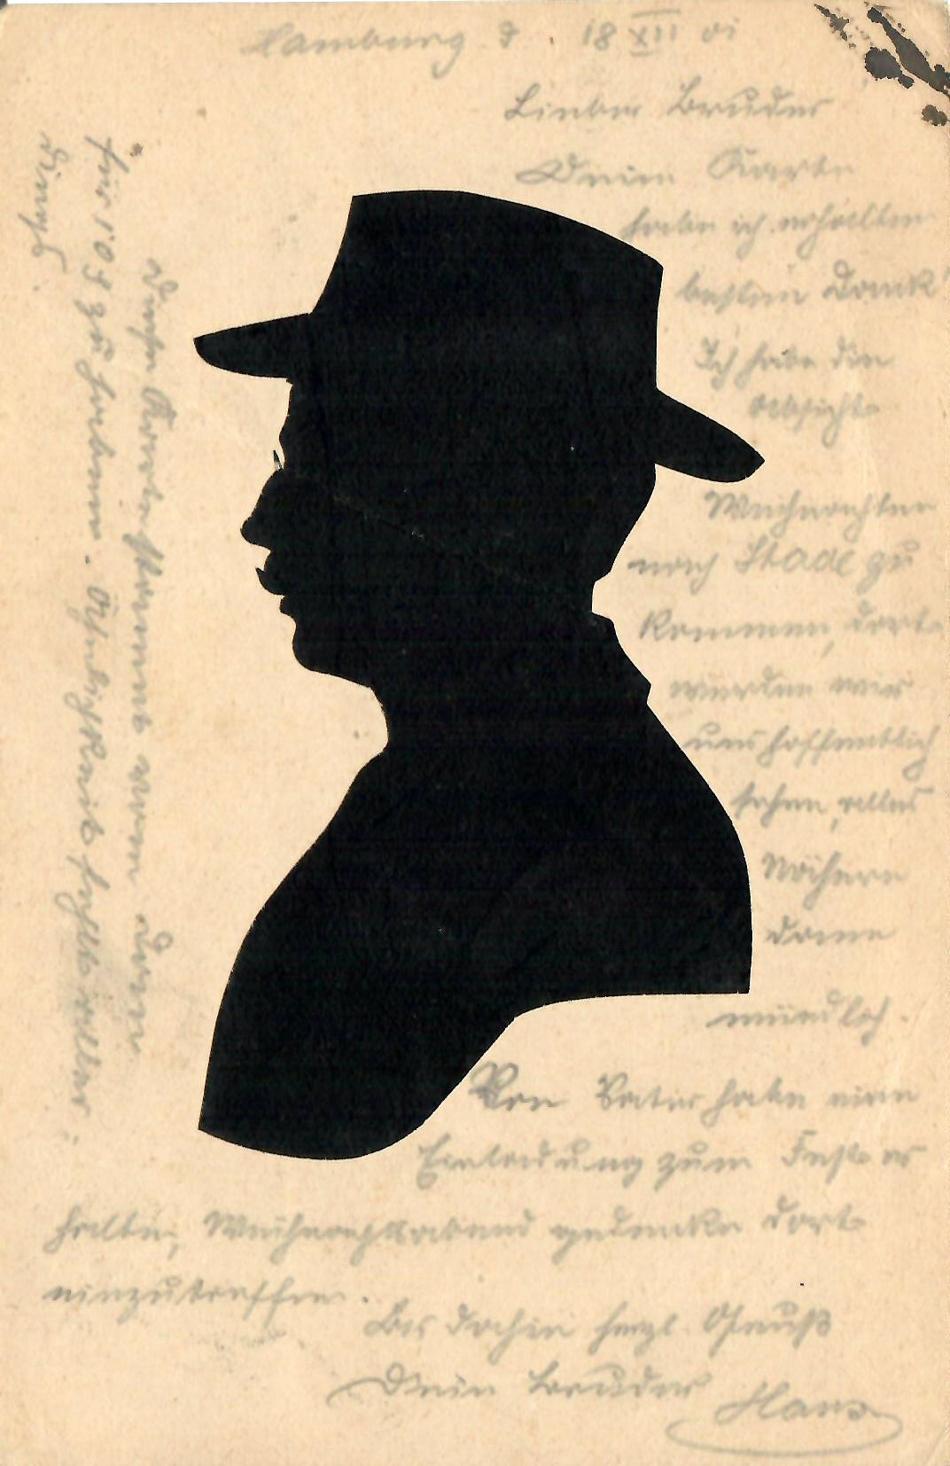 Hamburg d 18 XII 01
Lieber Bruder
Deine Karte
habe ich erhalten
besten Dank
Ich habe die
Absicht
Weihnachten
nach Stade zu
kommen, dort
werden wir
uns hoffentlich
sehen, alles
Nähere
dann
mündlich.
Von Vater habe eine
Einladung zum Fest er
halten, Weihnachtsabend gedenke dort
einzutreffen.
Bis dahin herzl. Gruß
Dein Bruder Hans
diese Karte kommt von dem
für 10 ₰ zu haben. Ähnlichkeit fehlt aller
dings